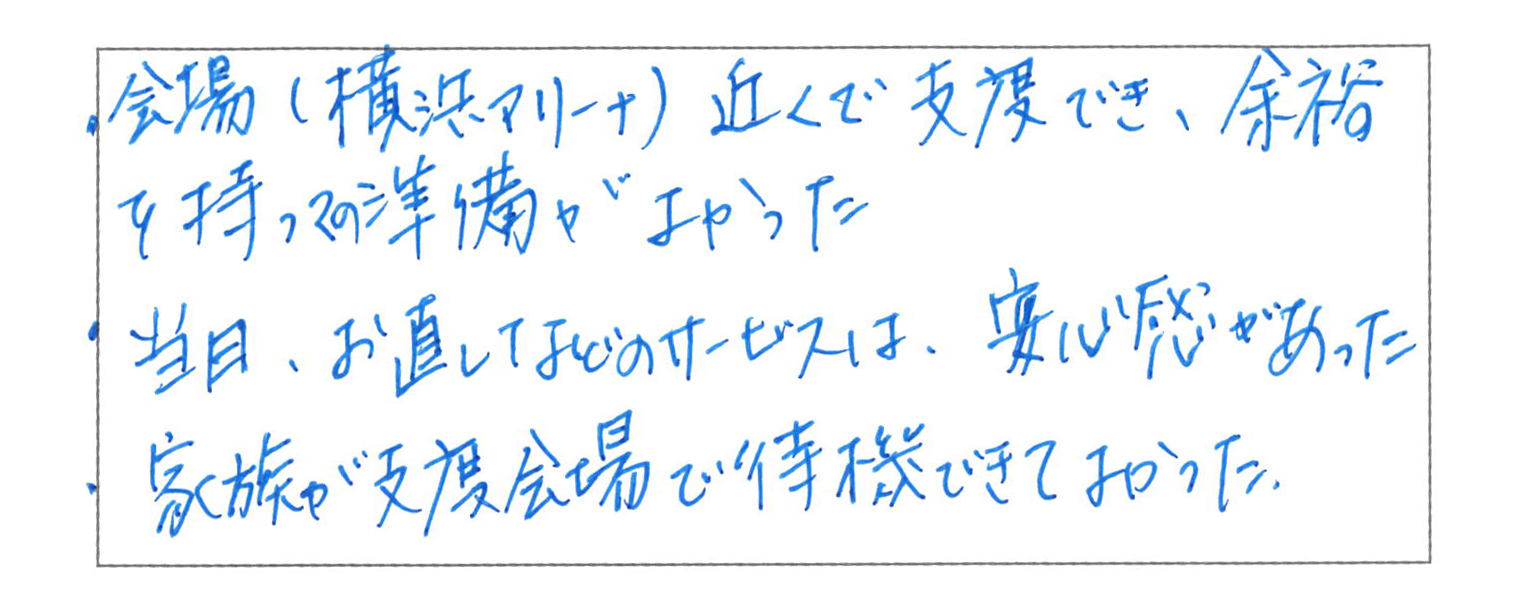 ・会場(横浜アリーナ)近くで支度でき、余裕
を持っての準備がよかった
・当日、お直しなどのサービスは、安心感があった
・家族が支度会場で待機できてよかった.